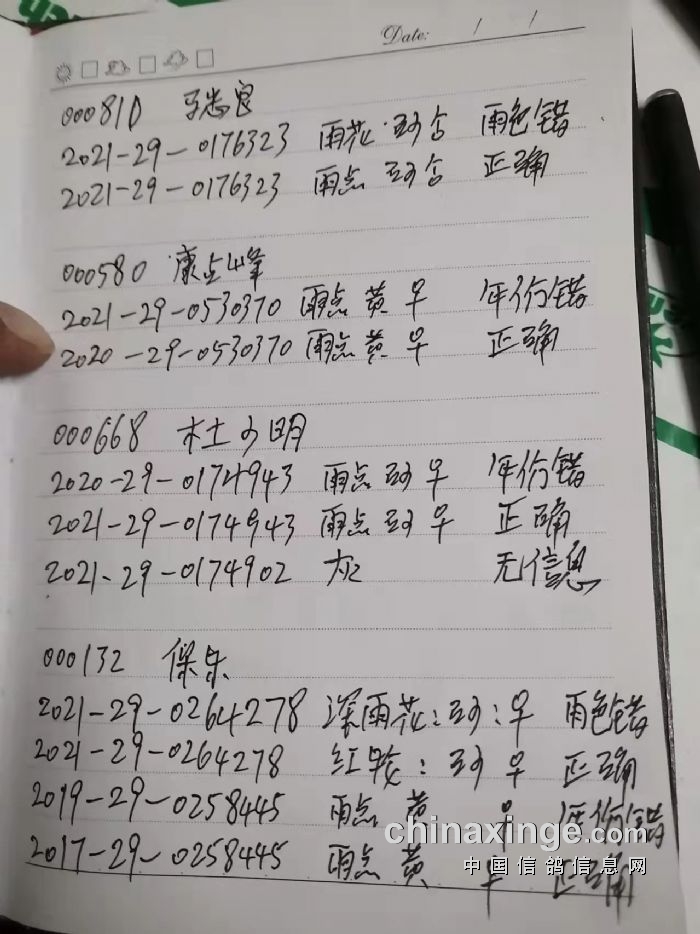 Date: / /
000810
2021-29-0176323 雨花 砂 雨色错
2021-29-0176323 雨点 砂 正确
000580 康 峰
2021-29-0530370 雨点 黄 早 年份错
2020-29-0530370 雨点 黄 早 正确
000668 杜小明
2020-29-0174943 雨点 砂 早 年份错
2021-29-0174943 雨点 砂 早 正确
2021-29-0174902 灰 无信息
000132 保乐
2021-29-0264278 深雨花:砂:早 雨色错
2021-29-0264278 红 : 砂 早 正确
2019-29-0258445 雨点 黄 早 年份错
chinaxinge.com
中国信鸽信息网
2017-29-0258445 雨点 黄 早 正确